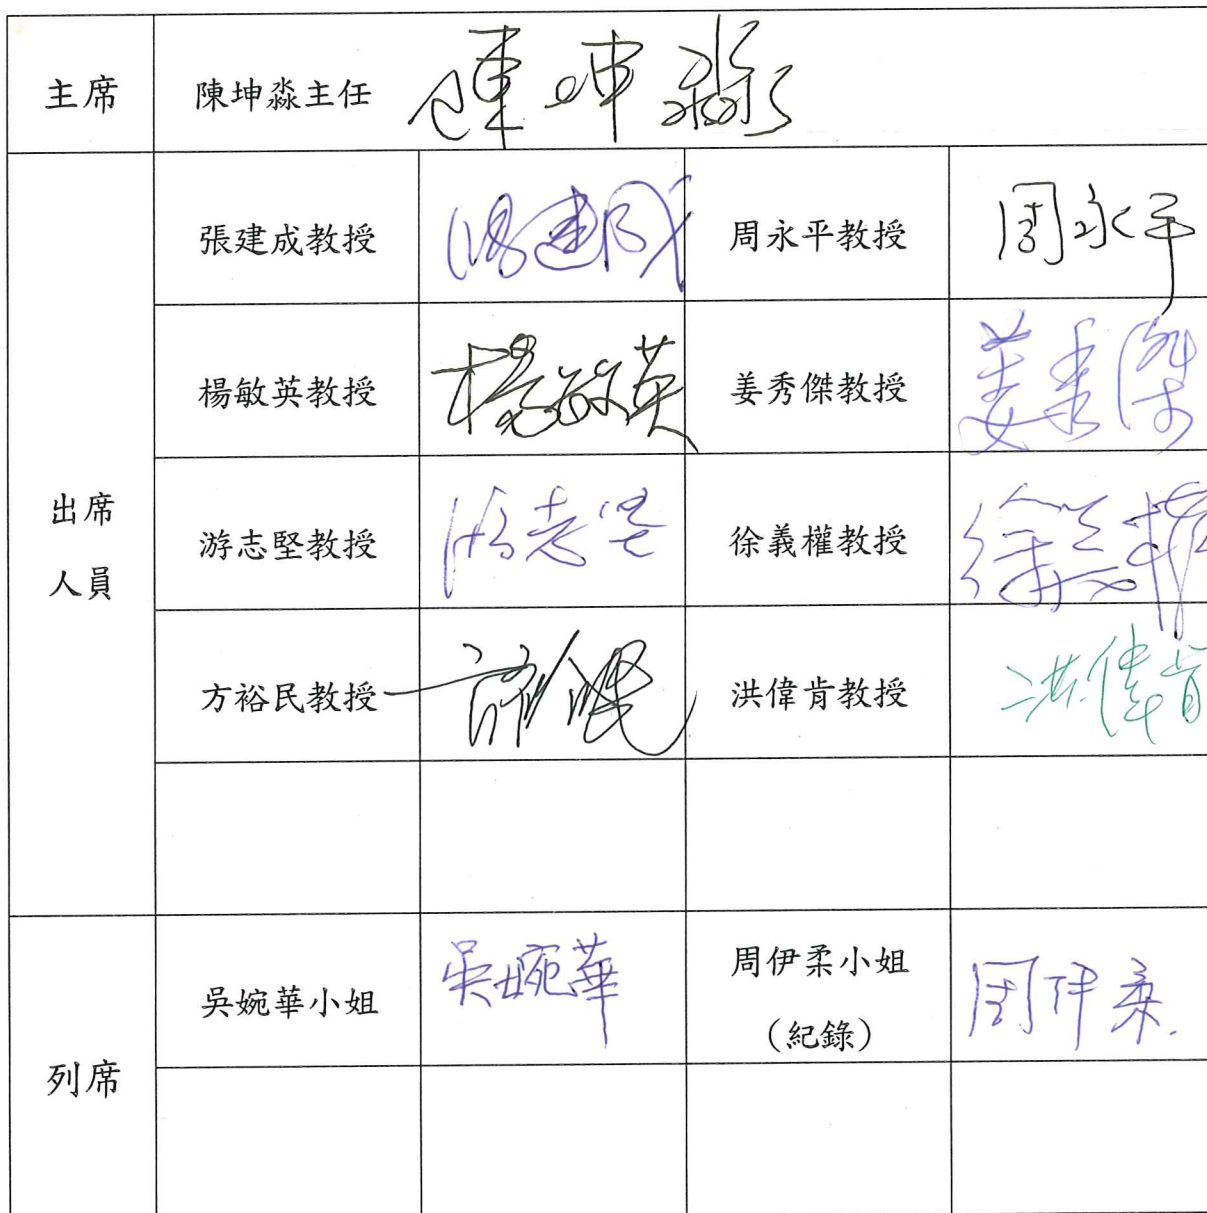 主席 陳坤淼主任 陳坤淼
張建成教授 張建成 周永平教授 周永平
楊敏英教授 楊敏英 姜秀傑教授 姜秀傑
出席
人員
游志堅教授 游志堅 徐義權教授 徐義權
方裕民教授 洪偉肯教授 洪偉肯
吳婉華小姐 吳婉華 周伊柔小姐 周伊柔
(紀錄)
列席